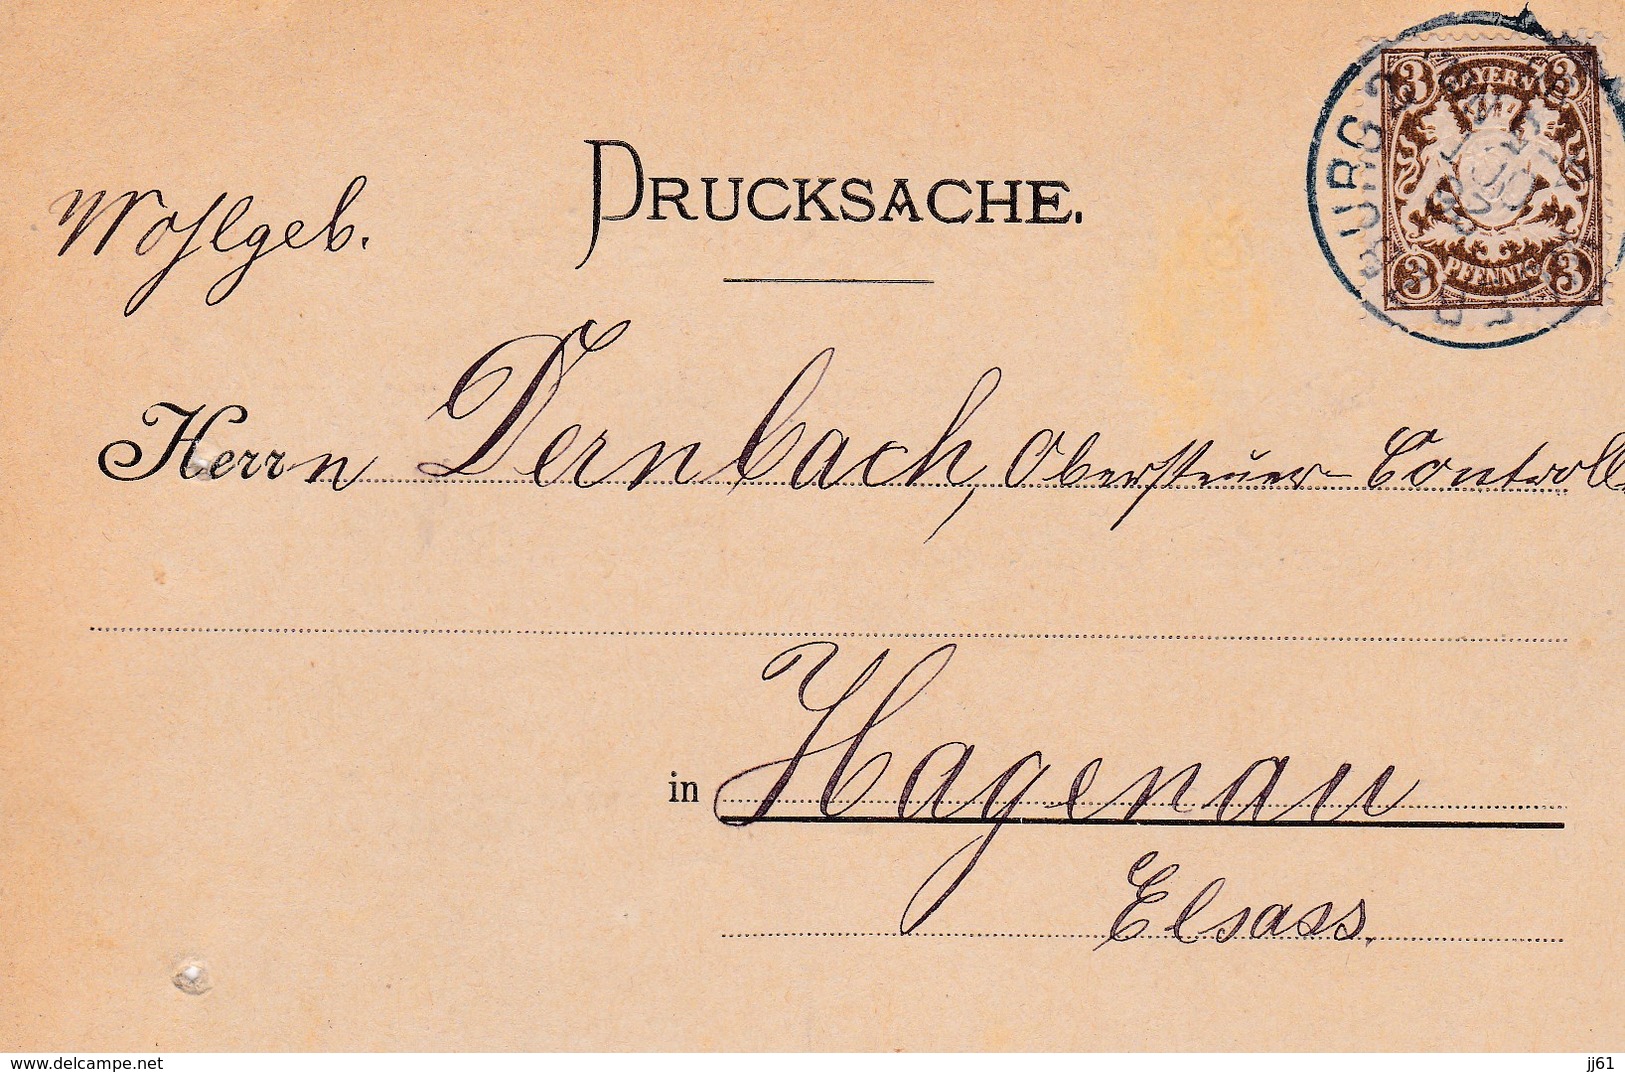 DRUCKSACHE.
BAYERN
3 3
3 PFENNIG 3
Wohlgeb.
Herrn Dernbach, Obersteuer-Controll
in Hagenau
Elsass.
www.delcampe.net
jj61